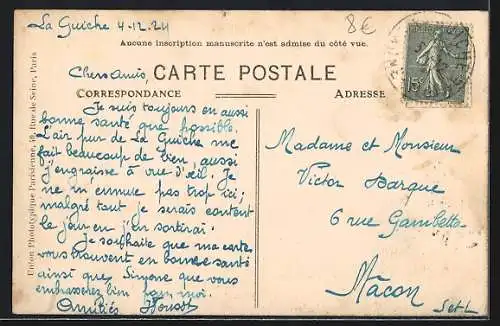 La Guiche 4-12.24
8€
Aucune inscription manuscrite n'est admise du côté vue.
Chers amis,
CARTE POSTALE
CORRESPONDANCE
ADRESSE
15c
Je suis toujours en aussi
bonne santé que possible.
L'air pur de La Guiche me
fait beaucoup de bien, aussi
j'engraisse à vue d'œil. Je
ne m'ennuie pas trop ici ;
malgré tout je serais content
le jour en j'en sortirai.
Je souhaite que ma carte
vous trouvent en bonne santé
ainsi que Simone que vous
embrasserez bien pour moi.
Amitiés
Madame et Monsieur
Victor
6 rue Gambetta
Mâcon
S et L
Union Phototypique Parisienne, Rue de Seine, Paris